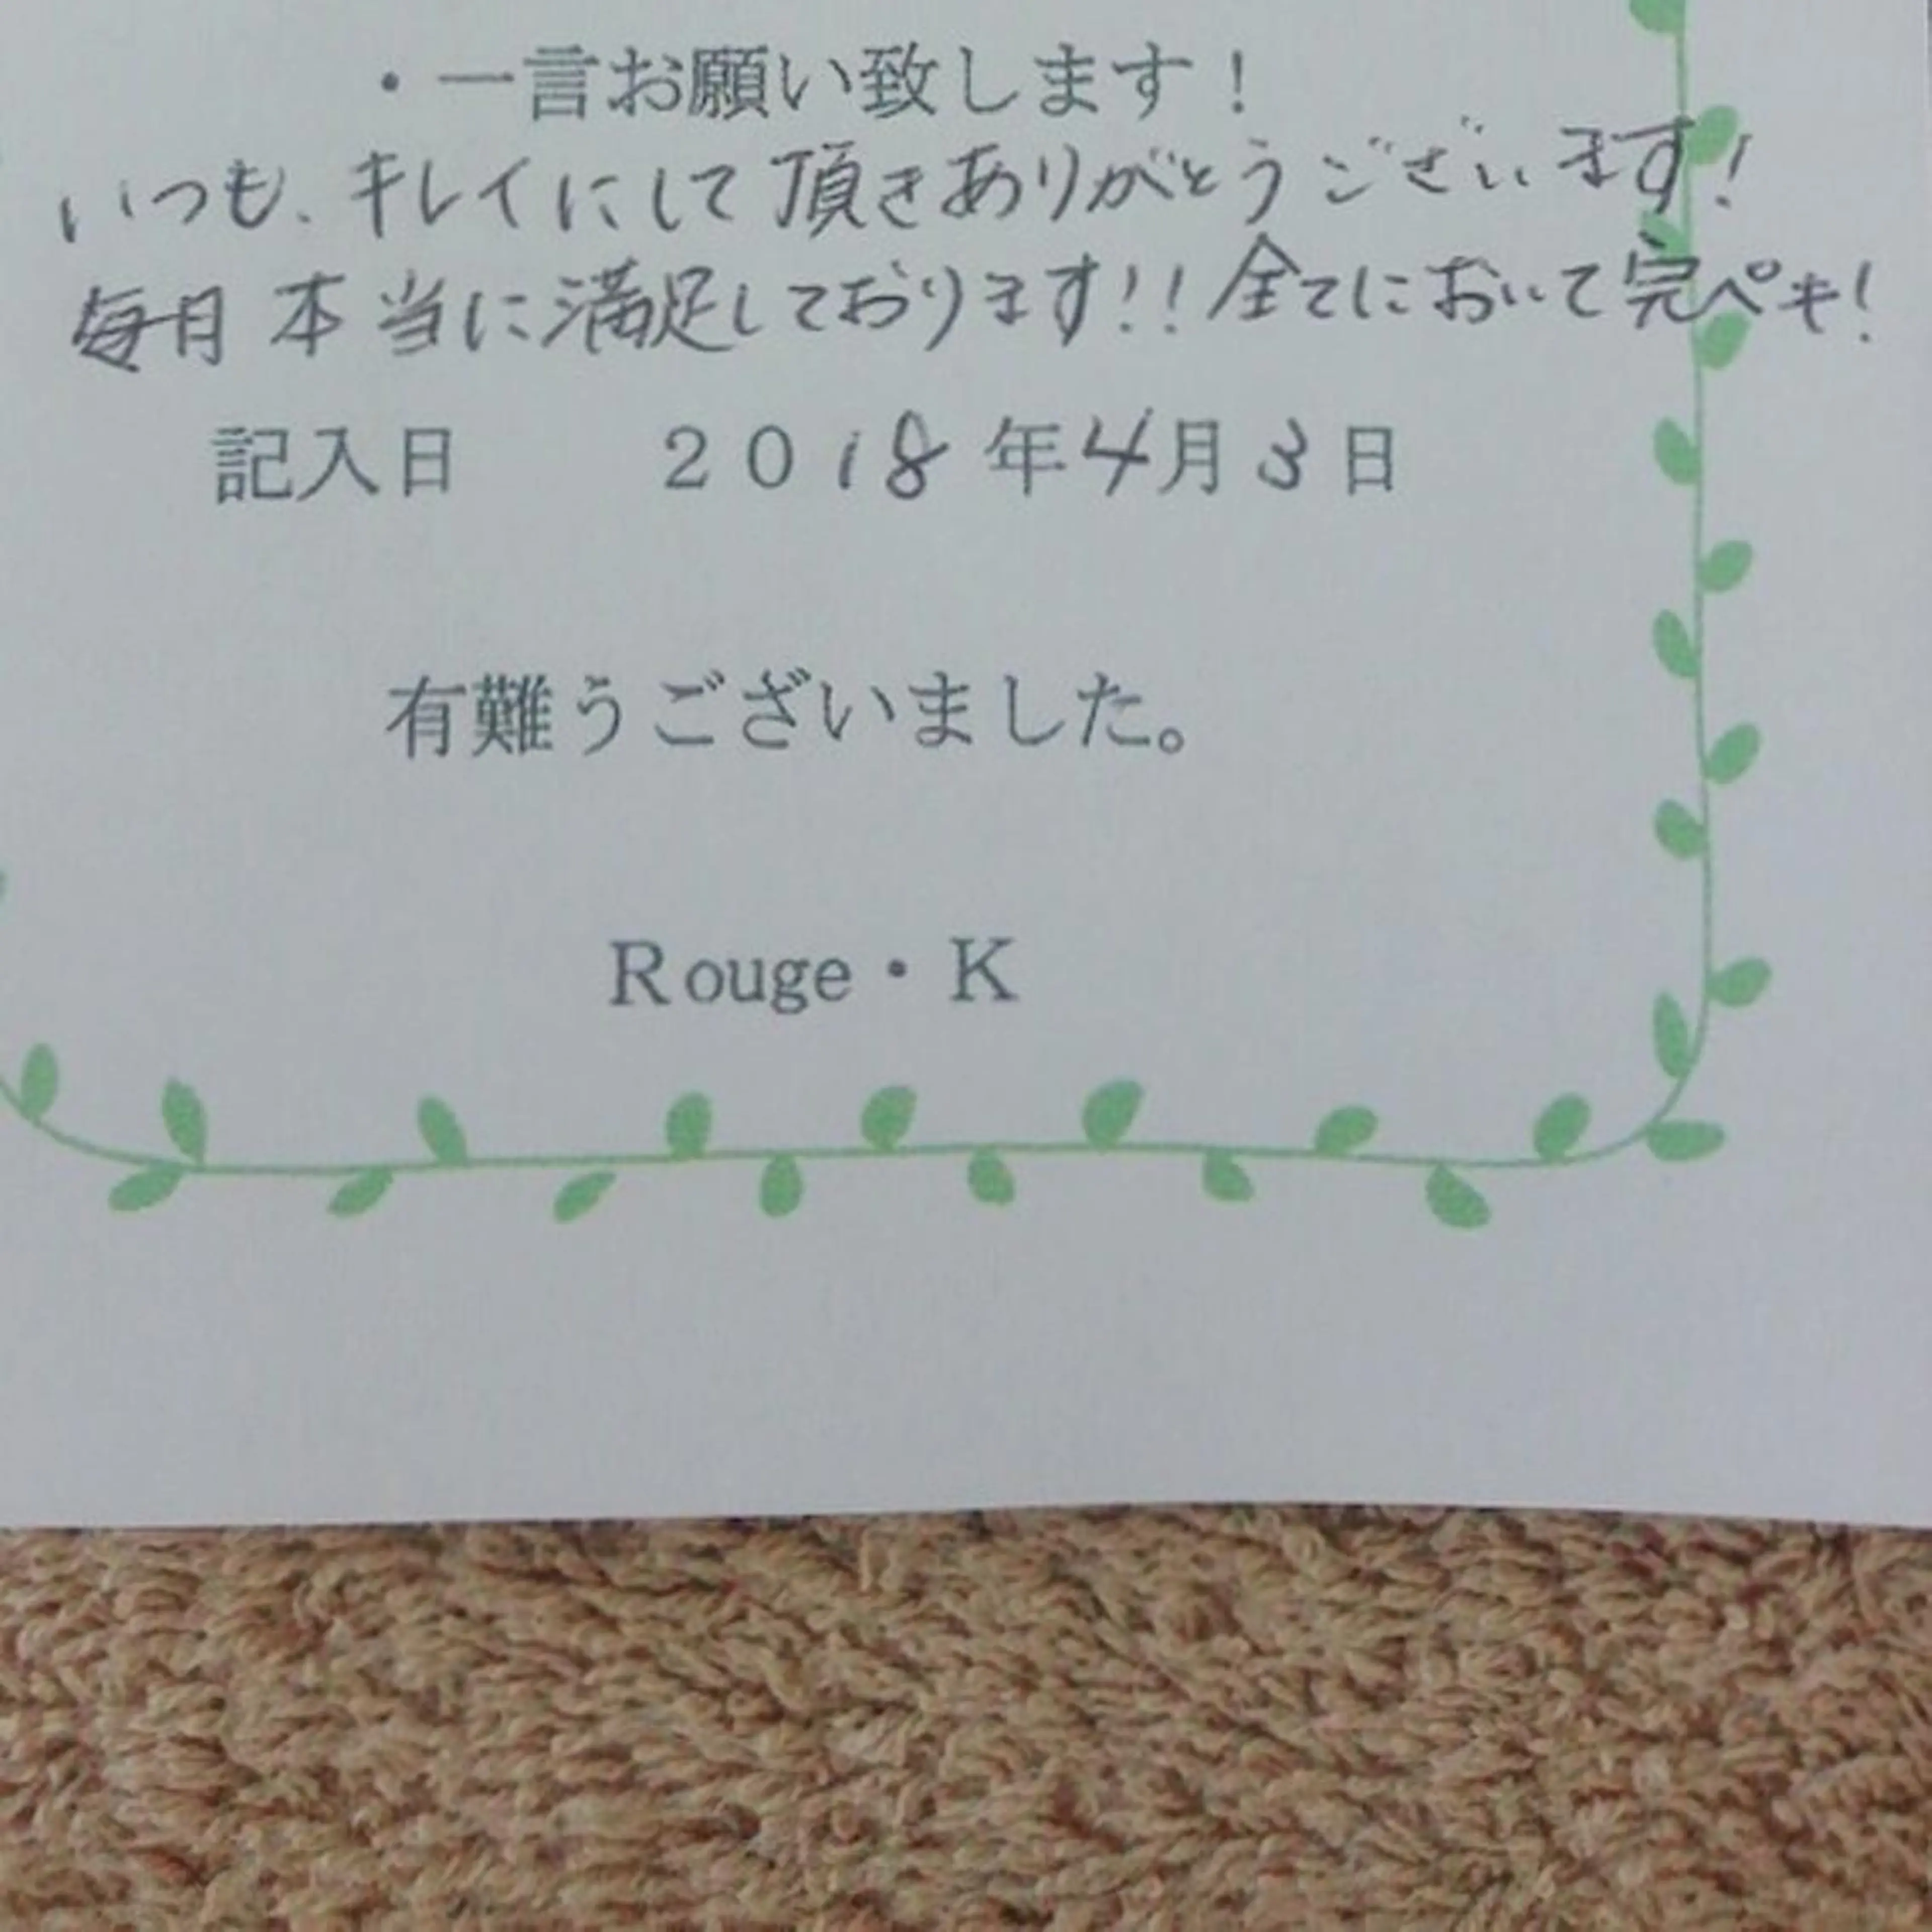 ・一言お願い致します！
いつも、キレイにして頂きありがとうございます！
毎月本当に満足しております！！全てにおいて完ペキ！
記入日 2018年4月3日
有難うございました。
Rouge・K